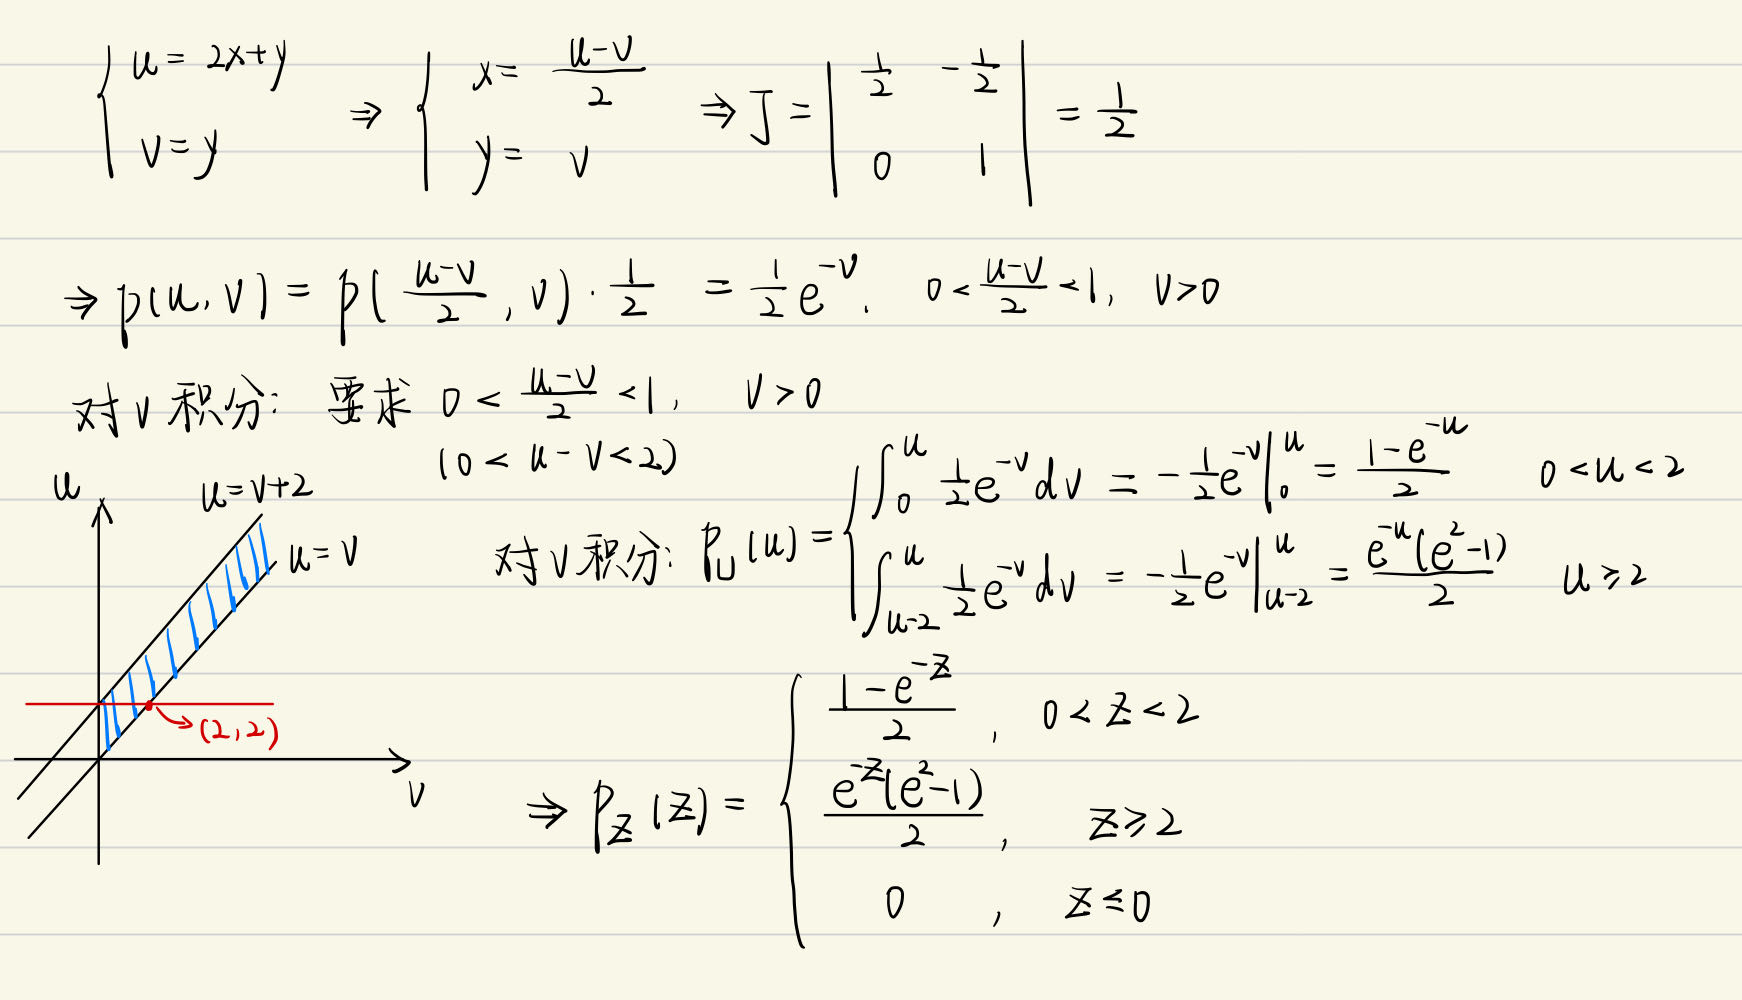 { u = 2x+y, v = y ⇒ { x = (u-v)/2, y = v ⇒ J = | 1/2 -1/2; 0 1 | = 1/2
⇒ p(u, v) = p((u-v)/2, v) · 1/2 = 1/2 e^{-v}. 0 < (u-v)/2 < 1, v > 0
对v积分: 要求 0 < (u-v)/2 < 1, v > 0
(0 < u-v < 2)
u
u = v+2
u = v
(2, 2)
v
对v积分: p_U(u) = { ∫_0^u 1/2 e^{-v} dv = -1/2 e^{-v} |_0^u = (1-e^{-u})/2 0 < u < 2
∫_{u-2}^u 1/2 e^{-v} dv = -1/2 e^{-v} |_{u-2}^u = e^{-u}(e^2-1)/2 u ⩾ 2
⇒ p_Z(z) = { (1-e^{-z})/2, 0 < z < 2
e^{-z}(e^2-1)/2, z ⩾ 2
0, z ≤ 0